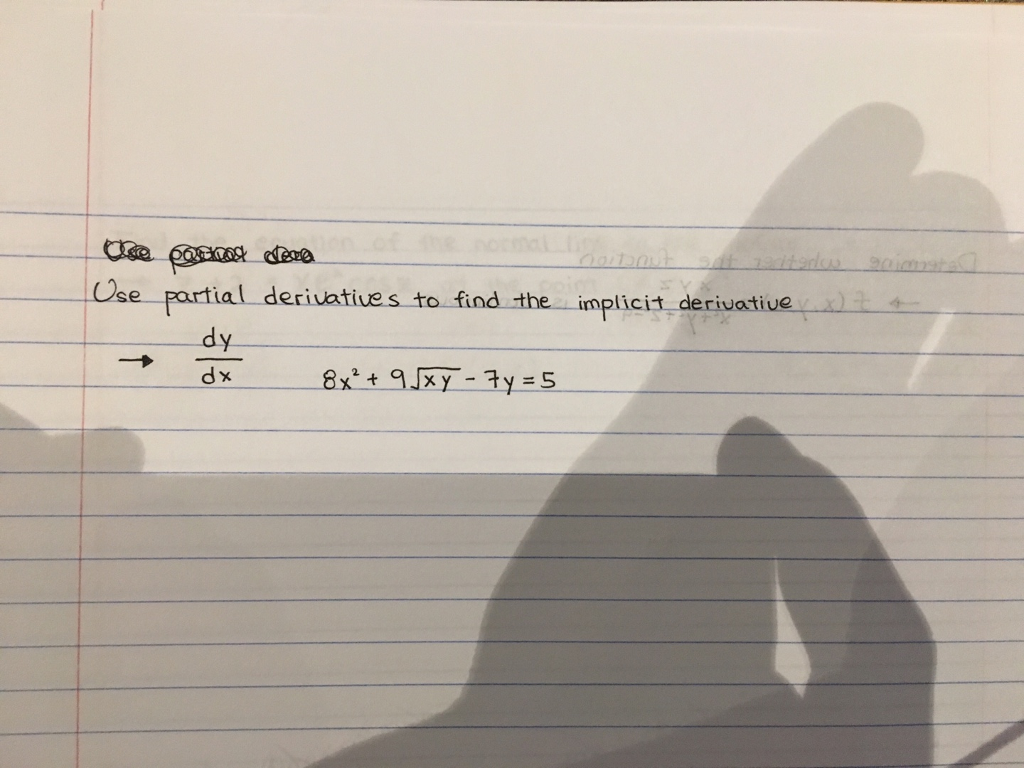 Use partial derivatives to find the implicit derivative
→ dy/dx    8x² + 9√xy - 7y = 5